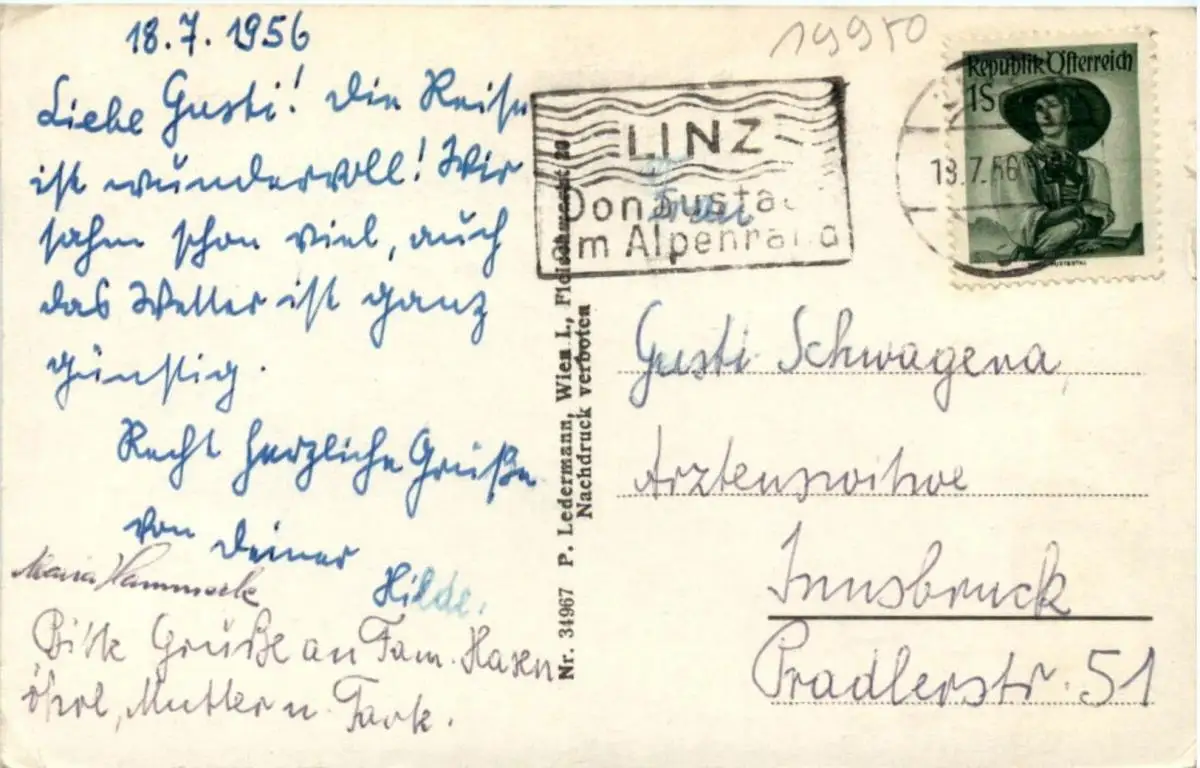 18.7.1956
Liebe Gusti! Die Reise
ist wundervoll! Wir
sahen schon viel, auch
das Wetter ist ganz
günstig.
Recht herzliche Grüße
von Deiner
Hilde.
Maria Hammerle
Bitte Grüße an Fam. Hasen
öhrl, Mutter u.
19950
LINZ
Donaustadt
am Alpenrand
Republik Österreich
1S
18.7.56
Nr. 34967 P. Ledermann, Wien I., 20
Nachdruck verboten
Gusti Schwagera,
Arztenswitwe
Innsbruck
Pradlerstr. 51